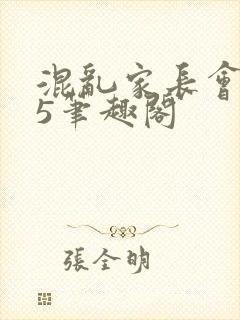 混亂家長會
5筆趣閣
張全明